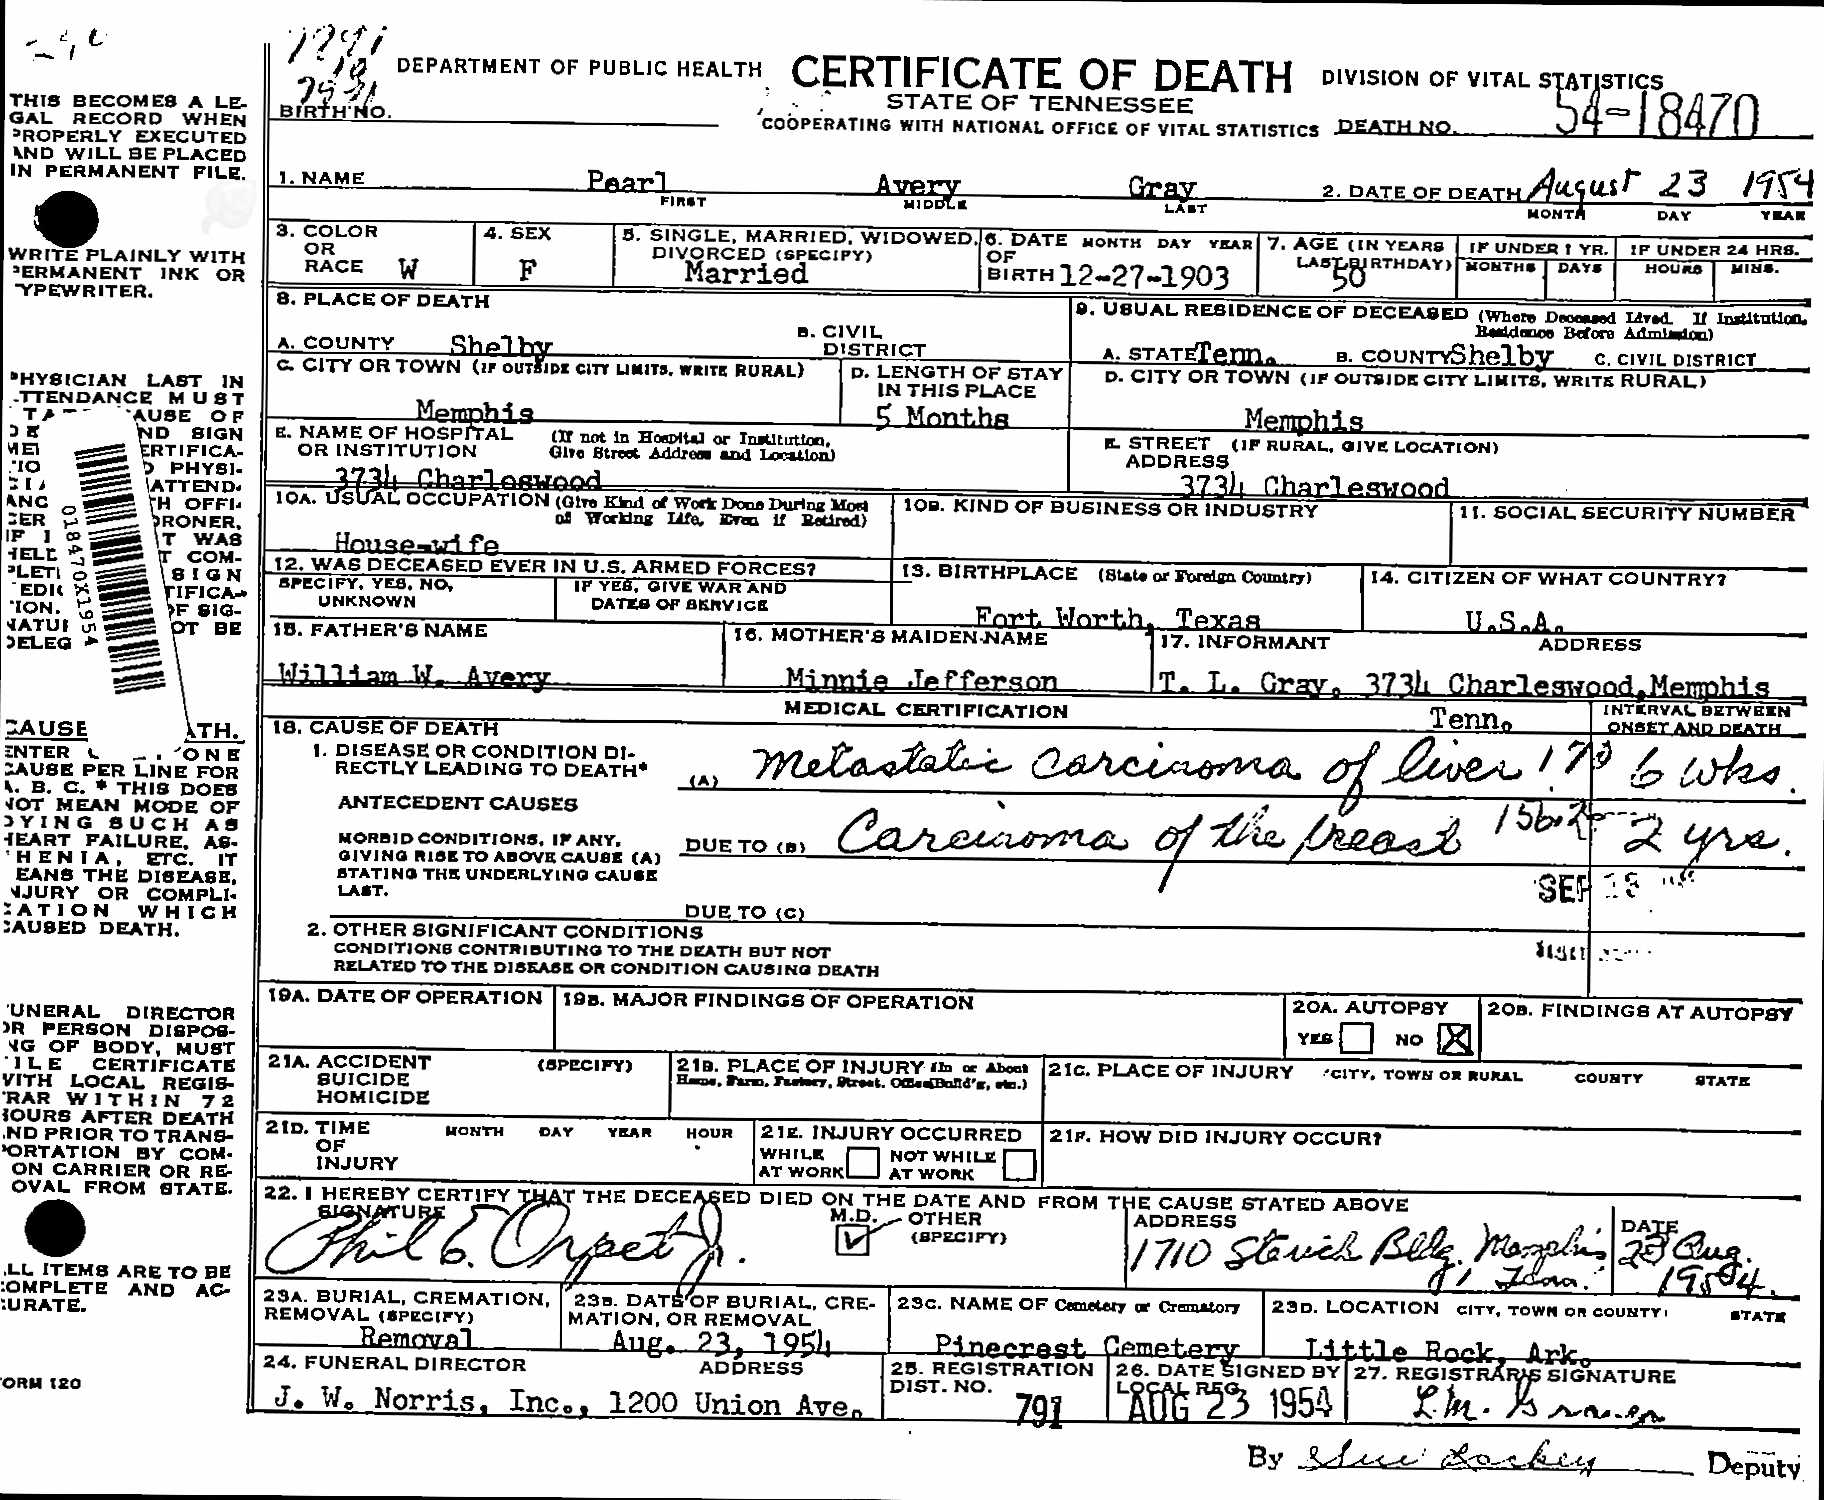 7291
19
7931
DEPARTMENT OF PUBLIC HEALTH CERTIFICATE OF DEATH DIVISION OF VITAL STATISTICS
STATE OF TENNESSEE
BIRTH NO. COOPERATING WITH NATIONAL OFFICE OF VITAL STATISTICS DEATH NO. 54-18470
1. NAME Pearl Avery Gray 2. DATE OF DEATH August 23 1954
FIRST MIDDLE LAST MONTH DAY YEAR
3. COLOR OR RACE W
4. SEX F
5. SINGLE, MARRIED, WIDOWED, DIVORCED (SPECIFY) Married
6. DATE OF BIRTH MONTH DAY YEAR 12-27-1903
7. AGE (IN YEARS LAST BIRTHDAY) 50
IF UNDER 1 YR. MONTHS DAYS
IF UNDER 24 HRS. HOURS MINS.
8. PLACE OF DEATH
A. COUNTY Shelby
B. CIVIL DISTRICT
C. CITY OR TOWN (IF OUTSIDE CITY LIMITS, WRITE RURAL) Memphis
D. LENGTH OF STAY IN THIS PLACE 5 Months
E. NAME OF HOSPITAL OR INSTITUTION (If not in Hospital or Institution, Give Street Address and Location)
3734 Charleswood
9. USUAL RESIDENCE OF DECEASED (Where Deceased Lived. If Institution, Residence Before Admission)
A. STATE Tenn. B. COUNTY Shelby C. CIVIL DISTRICT
D. CITY OR TOWN (IF OUTSIDE CITY LIMITS, WRITE RURAL)
Memphis
E. STREET ADDRESS (IF RURAL, GIVE LOCATION)
3734 Charleswood
10A. USUAL OCCUPATION (Give Kind of Work Done During Most of Working Life, Even if Retired)
House-wife
10B. KIND OF BUSINESS OR INDUSTRY
11. SOCIAL SECURITY NUMBER
12. WAS DECEASED EVER IN U.S. ARMED FORCES?
SPECIFY, YES, NO, UNKNOWN
IF YES, GIVE WAR AND DATES OF SERVICE
13. BIRTHPLACE (State or Foreign Country)
Fort Worth, Texas
14. CITIZEN OF WHAT COUNTRY?
U.S.A.
15. FATHER'S NAME
William W. Avery
16. MOTHER'S MAIDEN NAME
Minnie Jefferson
17. INFORMANT ADDRESS
T. L. Gray, 3734 Charleswood, Memphis
Tenn.
MEDICAL CERTIFICATION
INTERVAL BETWEEN ONSET AND DEATH
18. CAUSE OF DEATH
1. DISEASE OR CONDITION DIRECTLY LEADING TO DEATH* (A) Metastatic carcinoma of liver 170 6 wks.
ANTECEDENT CAUSES
MORBID CONDITIONS, IF ANY, GIVING RISE TO ABOVE CAUSE (A) STATING THE UNDERLYING CAUSE LAST.
DUE TO (B) Carcinoma of the breast 156.2 2 yrs.
SEP 18
DUE TO (C)
2. OTHER SIGNIFICANT CONDITIONS
CONDITIONS CONTRIBUTING TO THE DEATH BUT NOT
RELATED TO THE DISEASE OR CONDITION CAUSING DEATH
19A. DATE OF OPERATION
19B. MAJOR FINDINGS OF OPERATION
20A. AUTOPSY
YES NO
20B. FINDINGS AT AUTOPSY
21A. ACCIDENT SUICIDE HOMICIDE (SPECIFY)
21B. PLACE OF INJURY (In or About Home, Farm, Factory, Street, Office Build'g, etc.)
21C. PLACE OF INJURY CITY, TOWN OR RURAL COUNTY STATE
21D. TIME OF INJURY MONTH DAY YEAR HOUR
21E. INJURY OCCURRED
WHILE AT WORK NOT WHILE AT WORK
21F. HOW DID INJURY OCCUR?
22. I HEREBY CERTIFY THAT THE DECEASED DIED ON THE DATE AND FROM THE CAUSE STATED ABOVE
SIGNATURE Phil E. Orpet Jr.
M.D. OTHER (SPECIFY)
ADDRESS
1710 Sterick Bldg. Memphis, Tenn.
DATE
23 Aug. 1954.
23A. BURIAL, CREMATION, REMOVAL (SPECIFY)
Removal
23B. DATE OF BURIAL, CREMATION, OR REMOVAL
Aug. 23, 1954
23C. NAME OF Cemetery or Crematory
Pinecrest Cemetery
23D. LOCATION CITY, TOWN OR COUNTY STATE
Little Rock, Ark.
24. FUNERAL DIRECTOR ADDRESS
J. W. Norris, Inc., 1200 Union Ave.
25. REGISTRATION DIST. NO. 791
26. DATE SIGNED BY LOCAL REG.
AUG 23 1954
27. REGISTRAR'S SIGNATURE
L.M. Graves
By Sue Lackey Deputy
THIS BECOMES A LE-
GAL RECORD WHEN
PROPERLY EXECUTED
AND WILL BE PLACED
IN PERMANENT FILE.
WRITE PLAINLY WITH
PERMANENT INK OR
TYPEWRITER.
PHYSICIAN LAST IN
ATTENDANCE MUST
018470X1954
ENTER ONE
CAUSE PER LINE FOR
A. B. C. * THIS DOES
NOT MEAN MODE OF
DYING SUCH AS
HEART FAILURE, AS-
THENIA, ETC. IT
MEANS THE DISEASE,
INJURY OR COMPLI-
CATION WHICH
CAUSED DEATH.
FUNERAL DIRECTOR
OR PERSON DISPOS-
ING OF BODY, MUST
FILE CERTIFICATE
WITH LOCAL REGIS-
TRAR WITHIN 72
HOURS AFTER DEATH
AND PRIOR TO TRANS-
PORTATION BY COM-
MON CARRIER OR RE-
MOVAL FROM STATE.
ALL ITEMS ARE TO BE
COMPLETE AND AC-
CURATE.
FORM 120